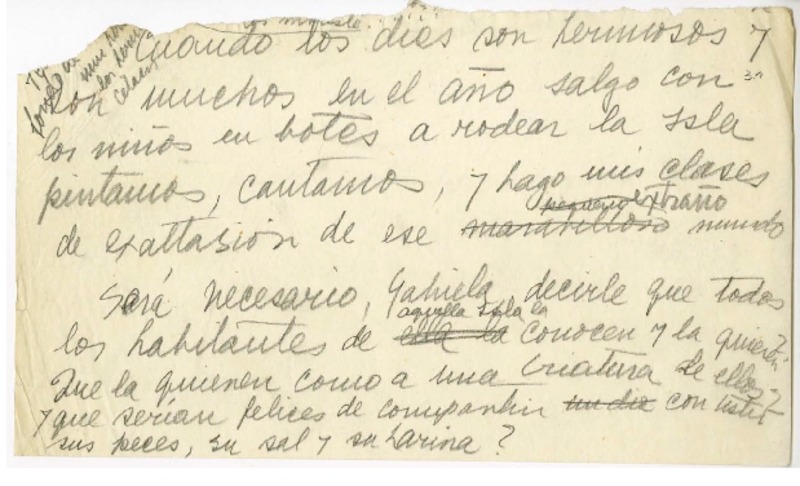 Cuando los dias son hermosos y
son muchos en el año salgo con
los niños en botes a rodear la Isla
pintamos, cantamos, y hago mis clases
pequeño extraño
de exaltasión de ese maravilloso mundo
Será necesario, Gabriela, decirle que todos
aquella Isla la
los habitantes de esa la conocen y la quieren?
Que la quieren como a una criatura de ellos?
y que serían felices de compartir un dia con usted
sus peces, su sal y su harina?